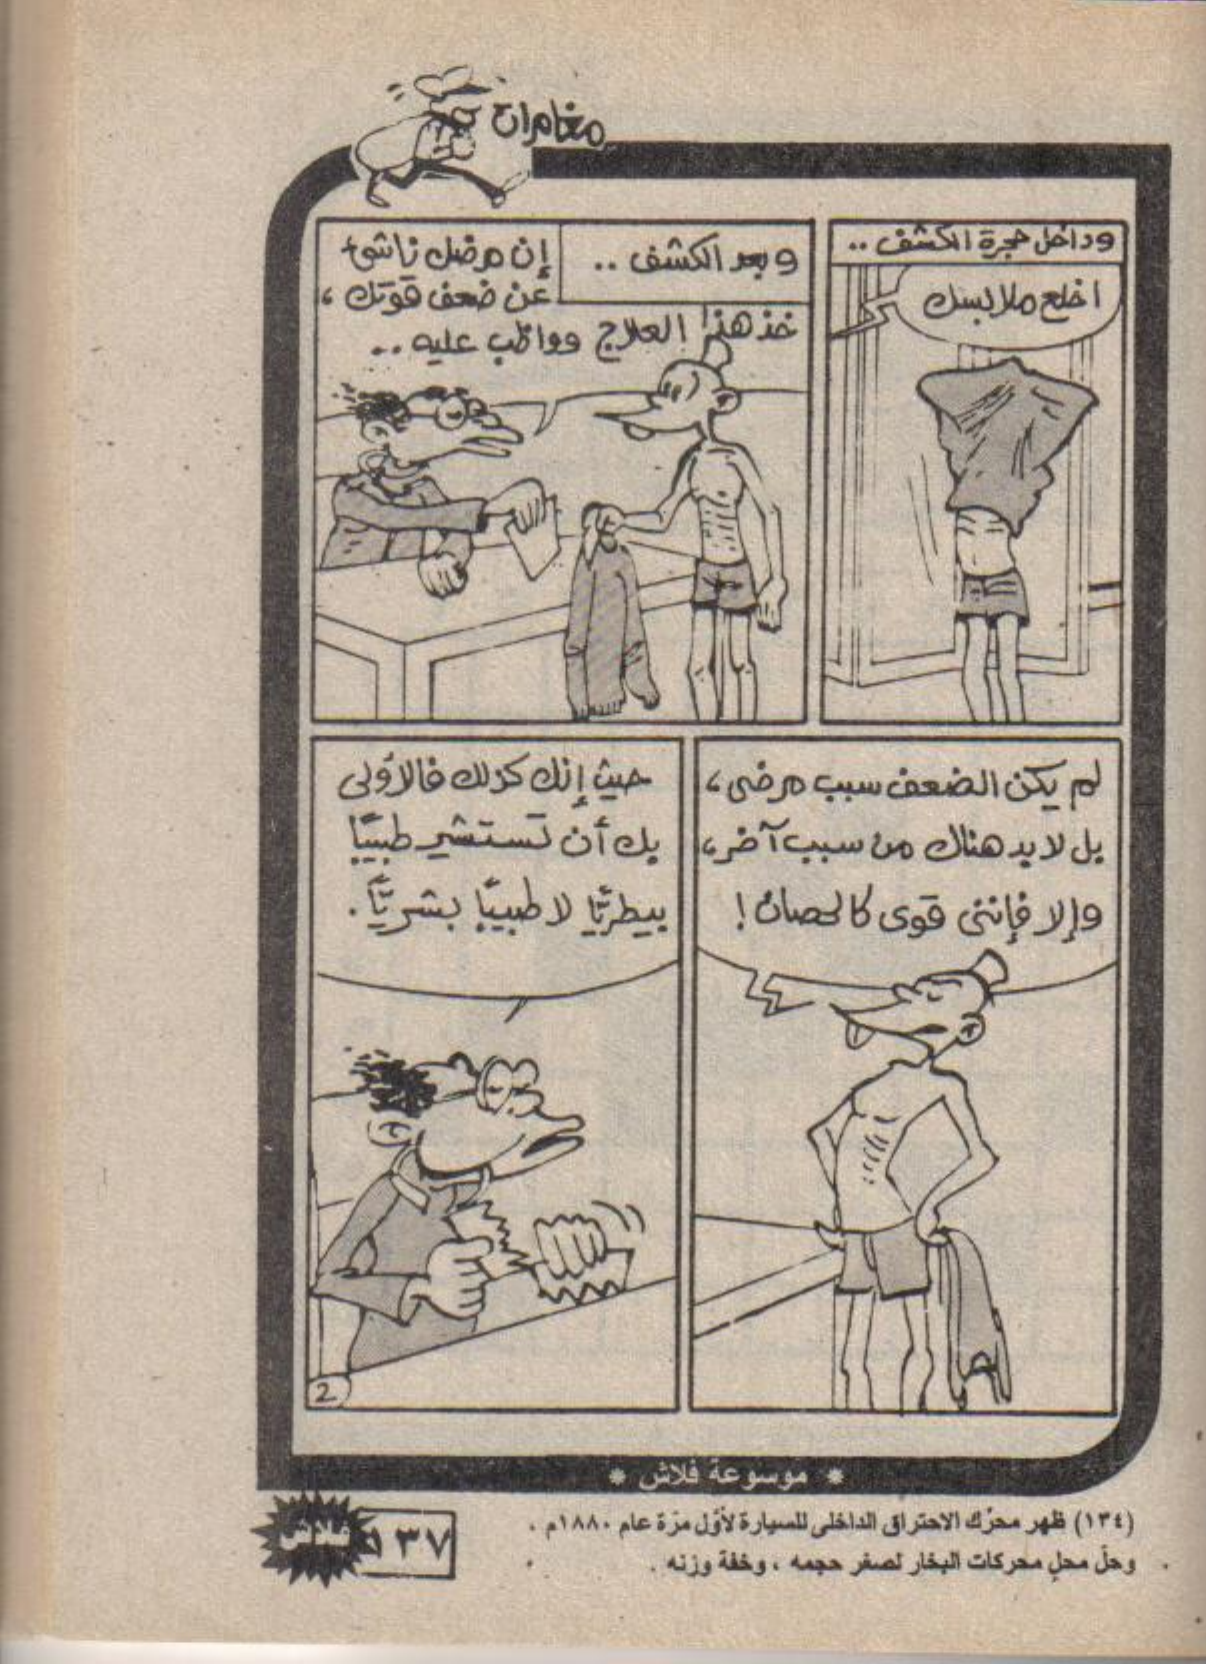 مغامرات
وداخل حجرة الكشف ..
اخلع ملابسك
وبعد الكشف ..
إن مرضك ناشئ
عن ضعف قوتك ،
خذ هذا العلاج وواظب عليه ..
لم يكن الضعف سبب مرضى ،
بل لابد هناك من سبب آخر ،
وإلا فإننى قوى كالحصان !
حيث إنك كذلك فالأولى
بك أن تستشير طبيبًا
بيطريًّا لا طبيبًا بشريًّا .
2
* موسوعة فلاش *
(١٣٤) ظهر محرّك الاحتراق الداخلى للسيارة لأوّل مرّة عام ١٨٨٠م .
وحلّ محل محركات البخار لصغر حجمه ، وخفة وزنه .
١٣٧
فلاش